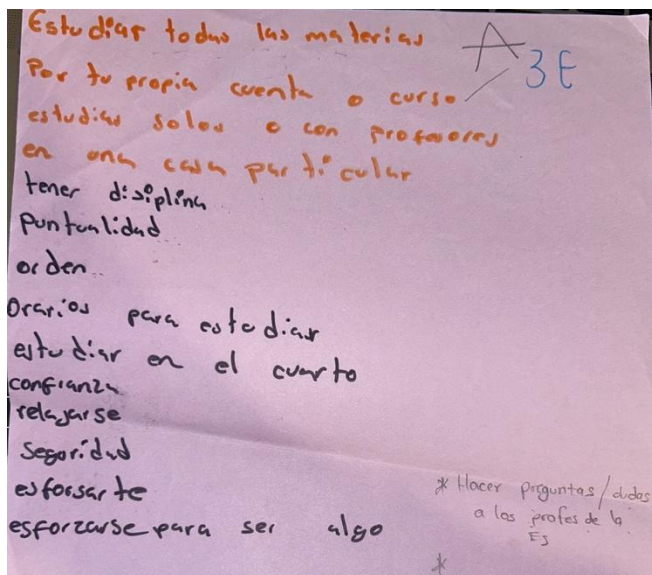 Estudiar todas las materias
A 3E
Por tu propia cuenta o curso
estudias solos o con profesores
en una casa particular
tener disiplina
Puntualidad
orden
Orarios para estudiar
estudiar en el cuarto
confianza
relajarse
Seguridad
esforsarte
esforzarse para ser algo
* Hacer preguntas/dudas
a los profes de la
Es
*